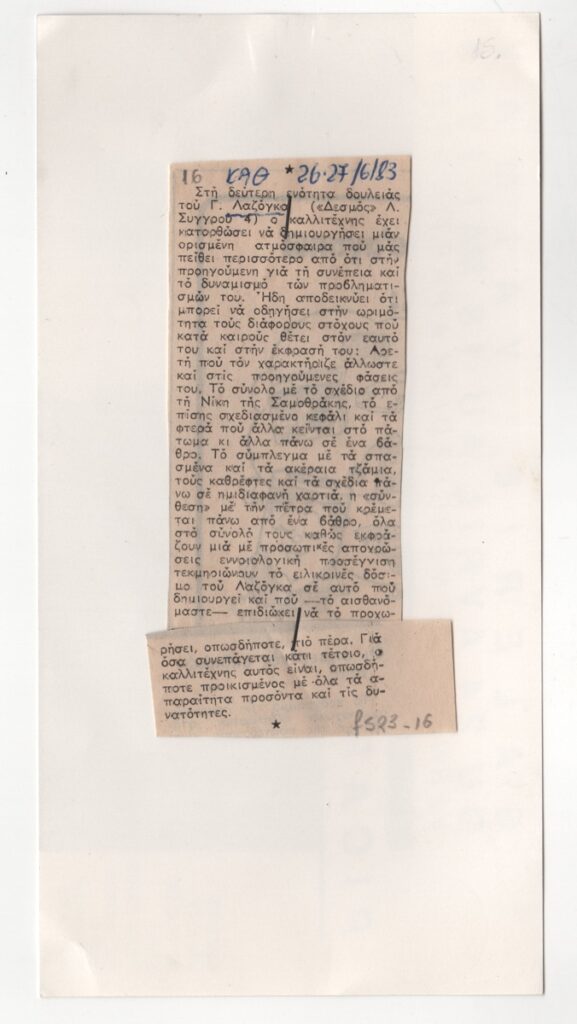 15.
16 ΚΑΘ ★ 26-27/6/83
Στή δεύτερη ενότητα δουλειάς
τού Γ. Λαζόγκα («Δεσμός» Λ.
Συγγρού 4) ο καλλιτέχνης έχει
κατορθώσει νά δημιουργήσει μιάν
ορισμένη ατμόσφαιρα πού μάς
πείθει περισσότερο από ότι στήν
προηγούμενη γιά τή συνέπεια καί
τό δυναμισμό τών προβληματι-
σμών του. Ήδη αποδεικνύει ότι
μπορεί νά οδηγήσει στήν ωριμό-
τητα τούς διάφορους στόχους πού
κατά καιρούς θέτει στόν εαυτό
του καί στήν έκφρασή του: Αρε-
τή πού τόν χαρακτήριζε άλλωστε
καί στίς προηγούμενες φάσεις
του. Τό σύνολο μέ τό σχέδιο από
τή Νίκη τής Σαμοθράκης, τό ε-
πίσης σχεδιασμένο κεφάλι καί τά
φτερά πού άλλα κείνται στό πά-
τωμα κι άλλα πάνω σέ ένα βά-
θρο. Τό σύμπλεγμα μέ τά σπα-
σμένα καί τά ακέραια τζάμια,
τούς καθρέφτες καί τά σχέδια πά-
νω σέ ημιδιαφανή χαρτιά, η «σύν-
θεση» μέ τήν πέτρα πού κρέμε-
ται πάνω από ένα βάθρο, όλα
στό σύνολό τους καθώς εκφρά-
ζουν μιά μέ προσωπικές αποχρώ-
σεις εννοιολογική προσέγγιση
τεκμηριώνουν τό ειλικρινές δόσι-
μο τού Λαζόγκα σέ αυτό πού
δημιουργεί καί πού —τό αισθανό-
μαστε— επιδιώκει νά τό προχω-
ρήσει, οπωσδήποτε, πιό πέρα. Γιά
όσα συνεπάγεται κάτι τέτοιο, ο
καλλιτέχνης αυτός είναι, οπωσδή-
ποτε προικισμένος μέ όλα τά α-
παραίτητα προσόντα καί τίς δυ-
νατότητες.
★ fs23-16